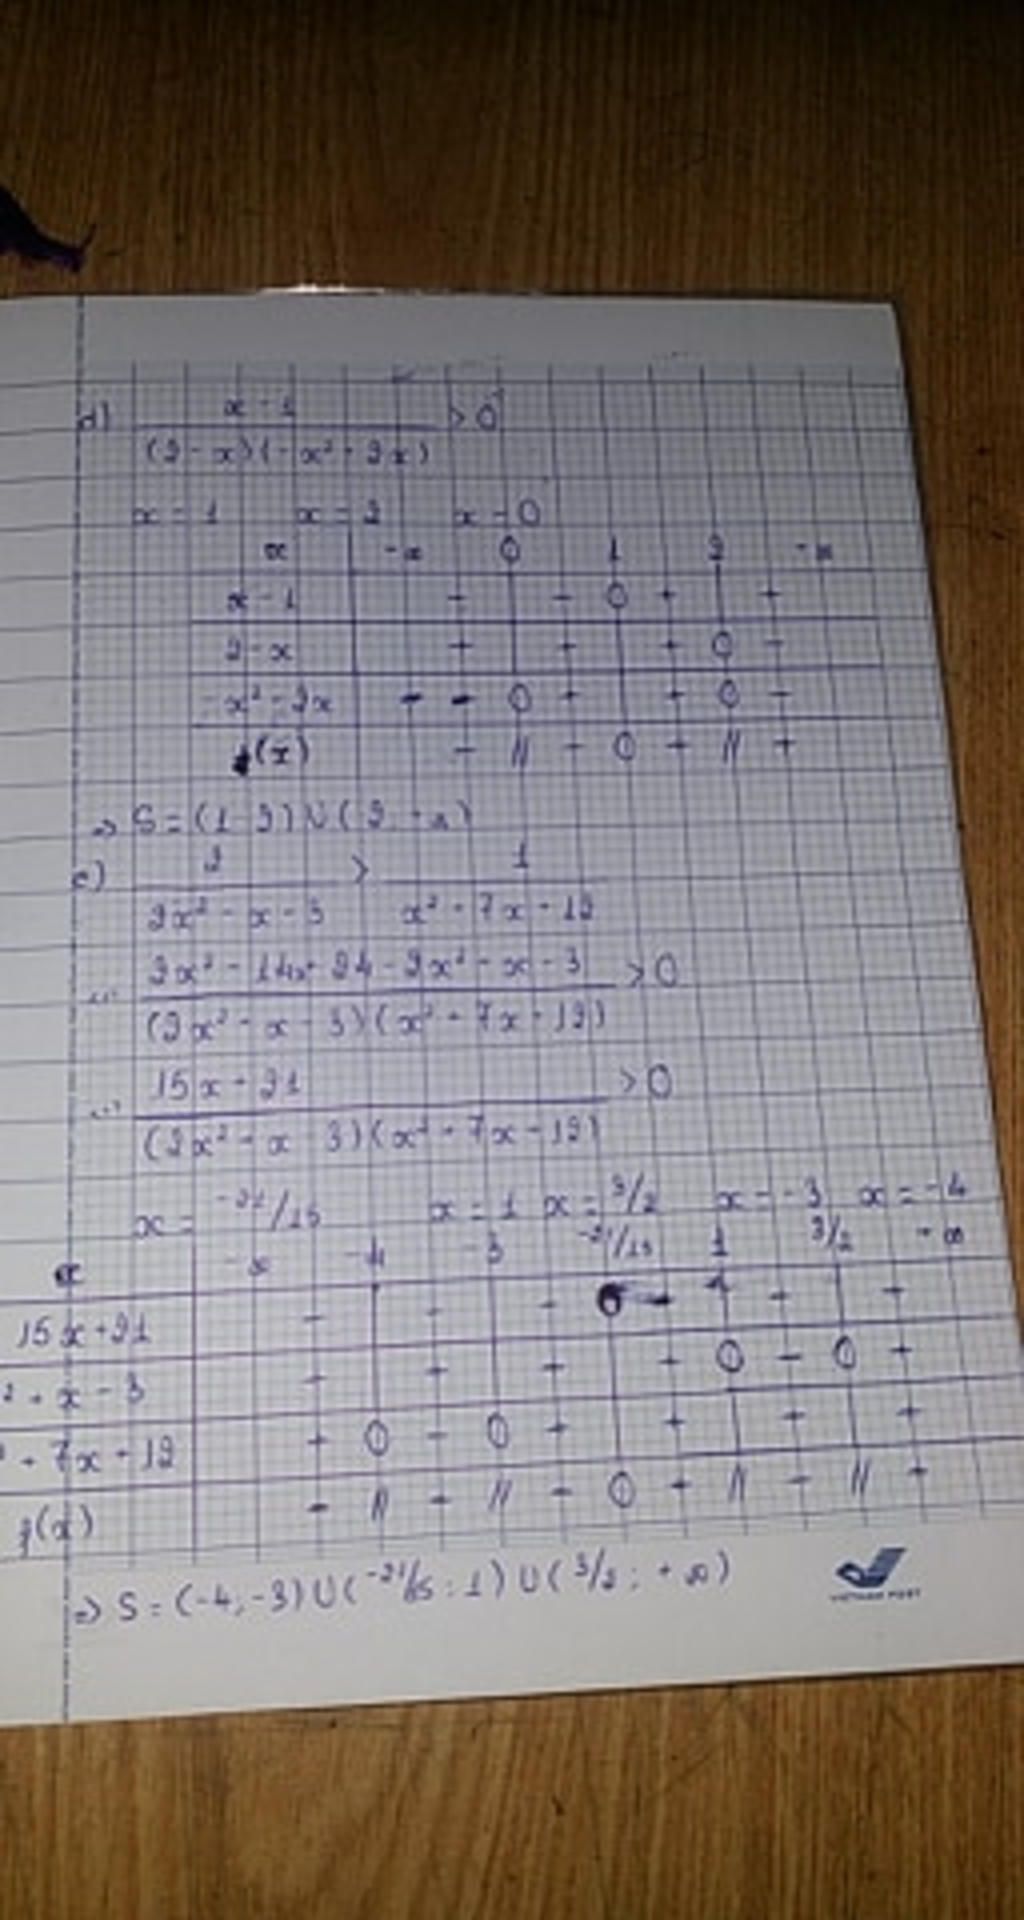 d) x - 1 / (2 - x)(-x² + 2x) > 0
x = 1 x = 2 x = 0
x -∞ 0 1 2 +∞
x - 1 - - 0 + +
2 - x + + + 0 -
-x² + 2x - 0 + + 0 -
f(x) + || - 0 + || +
=> S = (1 2) U (2
e) 2 / 2x² - x - 3 > 1 / x² + 7x + 12
2x² + 14x + 24 - 2x² + x + 3 > 0
(2x² - x - 3)(x² + 7x + 12)
15x + 21 > 0
(2x² - x - 3)(x² + 7x + 12)
x = -21/15 x = 1 x = 3/2 x = -3 x = -4
x -∞ -4 -3 -21/15 1 3/2 +∞
15x + 21
x - 3 0 - 0 +
+ 7x + 12 + 0 - 0 +
f(x) - || + || - 0 + || - || +
=> S = (-4, -3) U (-21/15 ; 1) U (3/2 ; +∞)
VIETNAM POST